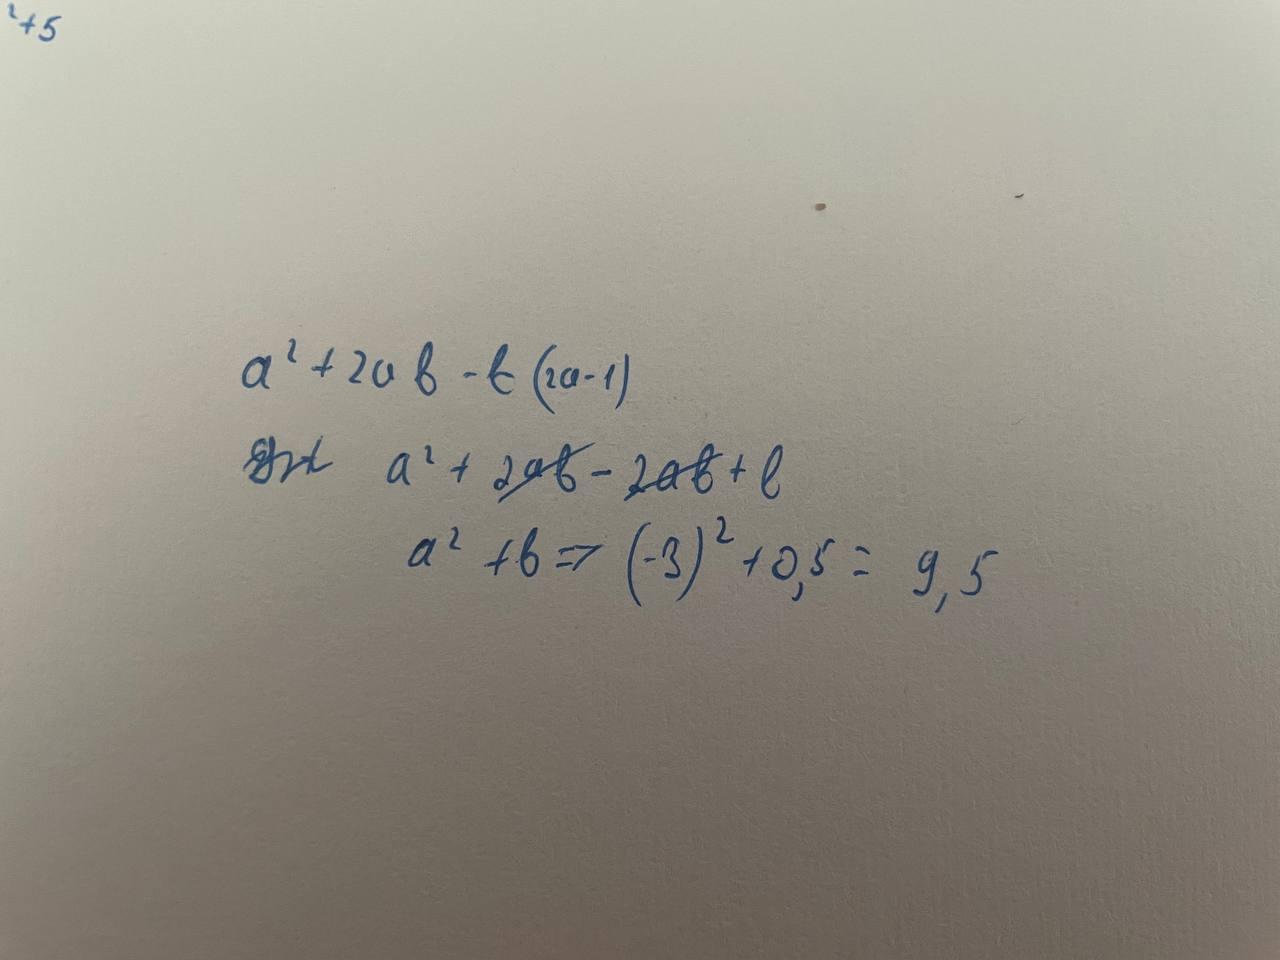 ²+5
a² + 2ab - b (2a-1)
a² + 2ab - 2ab + b
a² + b => (-3)² + 0,5 = 9,5